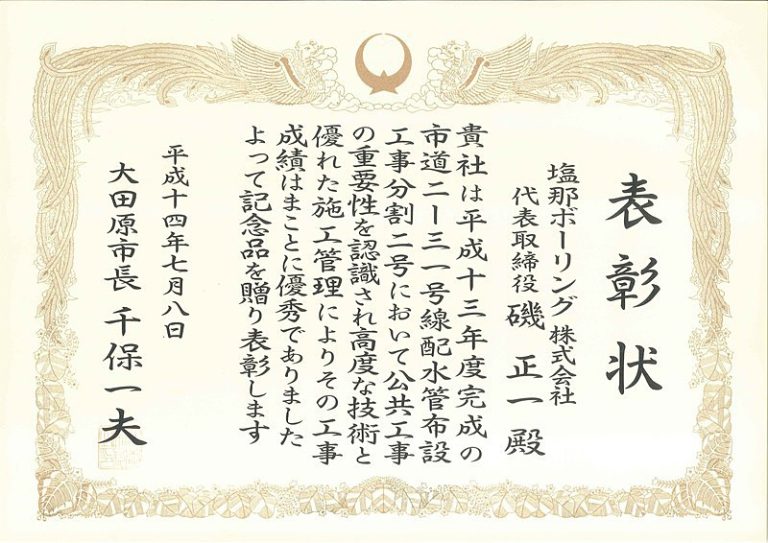 表彰状
塩那ボーリング株式会社
代表取締役 磯 正一 殿
貴社は平成十三年度完成の
市道二ー三一号線配水管布設
工事分割二号において公共工事
の重要性を認識され高度な技術と
優れた施工管理によりその工事
成績はまことに優秀でありました
よって記念品を贈り表彰します
平成十四年七月八日
大田原市長 千保一夫